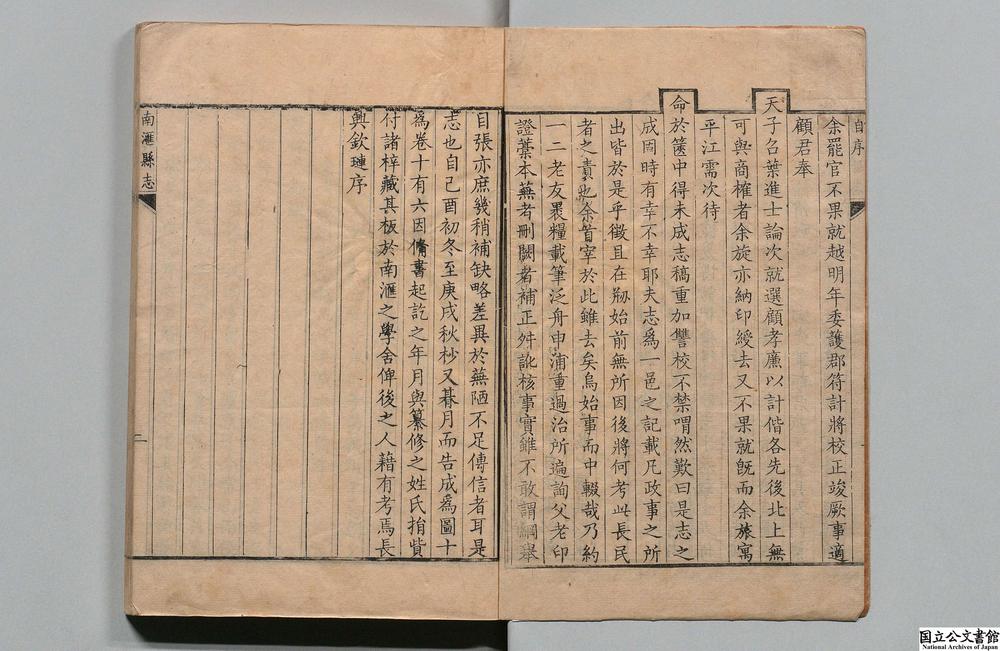 自序
余罷官不果就越明年委護郡符計將校正竣厥事適
顧君奉
天子召葉進士論次就選顧孝廉以計偕各先後北上無
可與商榷者余旋亦納印綬去又不果就旣而余旅寓
平江需次待
命於篋中得未成志稿重加讐校不禁喟然歎曰是志之
成固時有幸不幸耶夫志爲一邑之記載凡政事之所
出皆於是乎徵且在剏始前無所因後將何考此長民
者之責也余首宰於此雖去矣烏始事而中輟哉乃約
一二老友褁糧載筆泛舟申浦重過治所遍詢父老印
證藁本蕪者刪闕者補正舛訛核事實雖不敢謂綱舉
目張亦庶幾稍補缺略差異於蕪陋不足傳信者耳是
志也自己酉初冬至庚戌秋杪又朞月而告成爲圖十
爲卷十有六因備書起訖之年月與纂修之姓氏捐貲
付諸梓藏其板於南滙之學舍俾後之人藉有考焉長
興欽璉序
南滙縣志
二
国立公文書館
National Archives of Japan